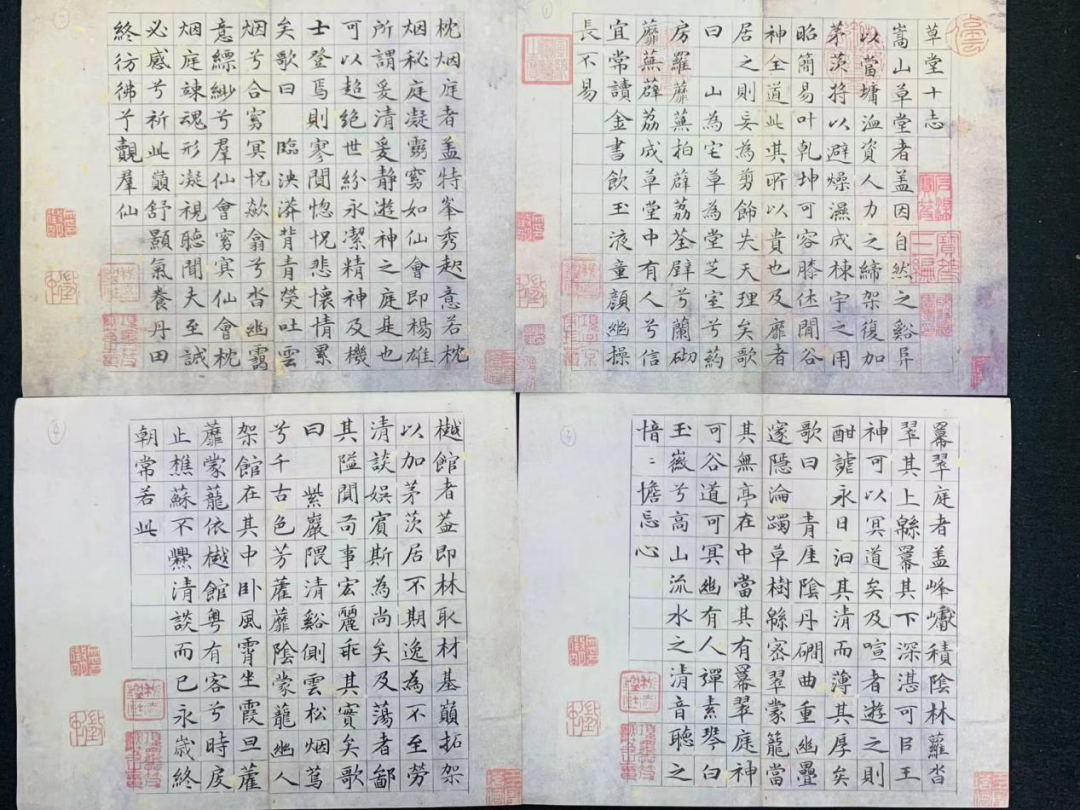 草堂十志
嵩山草堂者盖因自然之谿阜
以當墉洫資人力之締架復加
茅茨将以避燥濕成棟宇之用
昭簡易叶乾坤可容膝休閒谷
神全道此其所以貴也及靡者
居之則妄為剪飾失天理矣歌
曰　山為宅草為堂芝室兮葯
房羅蘼蕪拍薜荔荃壁兮蘭砌
蘼蕪薜荔成草堂中有人兮信
宜常讀金書飲玉液童顏幽操
長不易
枕烟庭者盖特峯秀起意若枕
烟秘庭凝霛窅如仙會即楊雄
所謂爰清爰静遊神之庭是也
可以超絶世紛永潔精神及機
士登焉則寥閴惚怳悲懷情累
矣歌曰　臨泱漭背青熒吐雲
烟兮合窅冥怳欻翕兮沓幽靄
意縹緲兮羣仙會窅冥仙會枕
烟庭竦魂形凝視聽聞夫至誠
必感兮祈此巔舒顥氣養丹田
終彷彿兮覿羣仙
羃翠庭者盖峰巘積陰林蘿沓
翠其上緜羃其下深湛可㠯王
神可以冥道矣及喧者遊之則
酣謔永日汨其清而薄其厚矣
歌曰　青厓陰丹磵曲重幽疊
邃隱淪躅草樹緜密翠蒙籠當
其無亭在中當其有羃翠庭神
可谷道可冥幽有人彈素琴白
玉徽兮高山流水之清音聽之
愔ミ憺忘心
樾館者盖即林取材基巔拓架
以加茅茨居不期逸為不至勞
清談娛賓斯為尚矣及蕩者鄙
其隘閴苟事宏麗乖其實矣歌
曰　紫巖隈清谿側雲松烟蔦
兮千古色芳藿蘼陰蒙蘢幽人
架館在其中卧風霄坐霞旦藿
蘼蒙蘢依樾館粤有客兮時戾
止樵蘇不爨清談而已永歲終
朝常若此